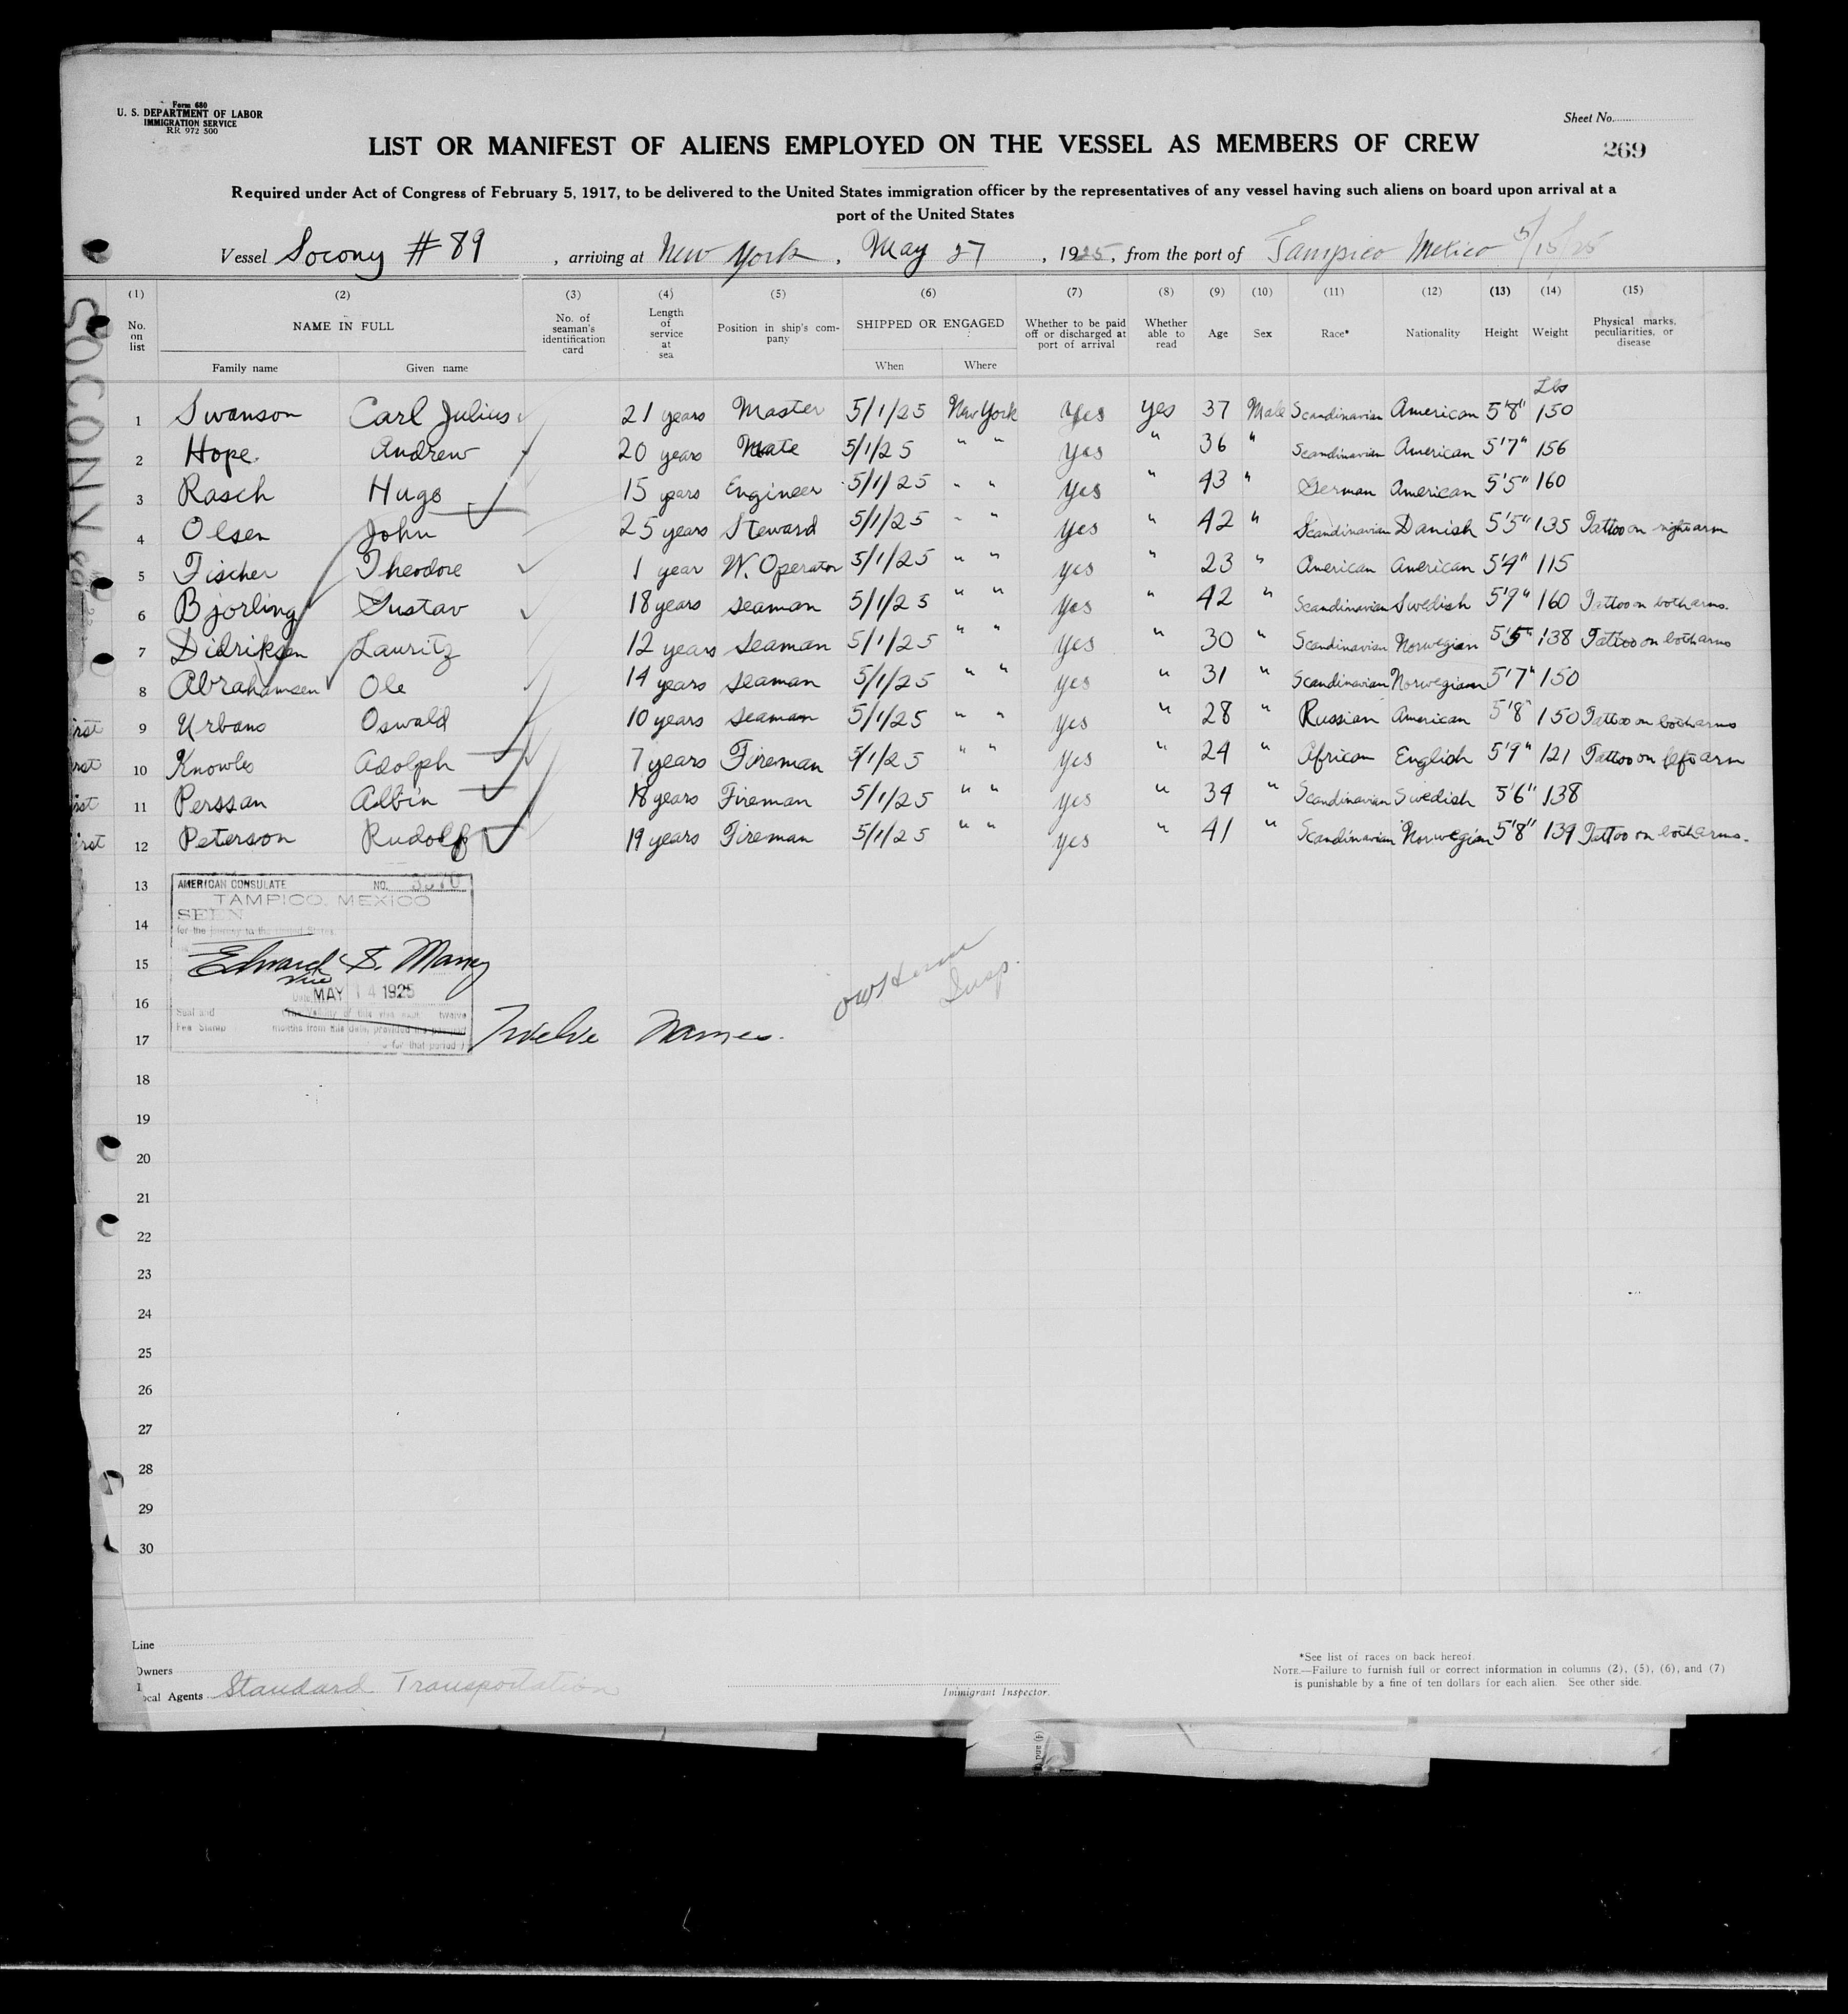 Form 680
U. S. DEPARTMENT OF LABOR
IMMIGRATION SERVICE
RR 972 500
Sheet No.
269
LIST OR MANIFEST OF ALIENS EMPLOYED ON THE VESSEL AS MEMBERS OF CREW
Required under Act of Congress of February 5, 1917, to be delivered to the United States immigration officer by the representatives of any vessel having such aliens on board upon arrival at a
port of the United States
Vessel Socony #89, arriving at New York, May 27, 1925, from the port of Tampico Mexico 5/15/25
SOCONY 89
(1) (2) (3) (4) (5) (6) (7) (8) (9) (10) (11) (12) (13) (14) (15)
No. on list NAME IN FULL Family name Given name No. of seaman's identification card Length of service at sea Position in ship's company SHIPPED OR ENGAGED When Where Whether to be paid off or discharged at port of arrival Whether able to read Age Sex Race* Nationality Height Weight Physical marks, peculiarities, or disease
Lbs
1 Swanson Carl Julius 21 years Master 5/1/25 New York Yes yes 37 Male Scandinavian American 5'8" 150
2 Hope Andrew 20 years Mate 5/1/25 " " Yes " 36 " Scandinavian American 5'7" 156
3 Rasch Hugo 15 years Engineer 5/1/25 " " Yes " 43 " German American 5'5" 160
4 Olsen John 25 years Steward 5/1/25 " " yes " 42 " Scandinavian Danish 5'5" 135 Tattoo on right arm
5 Fischer Theodore 1 year W. Operator 5/1/25 " " yes " 23 " American American 5'4" 115
6 Bjorling Gustav 18 years seaman 5/1/25 " " Yes " 42 " Scandinavian Swedish 5'9" 160 Tattoo on both arms.
7 Didriksen Lauritz 12 years seaman 5/1/25 " " Yes " 30 " Scandinavian Norwegian 5'5" 138 Tattoo on both arms
8 Abrahamsen Ole 14 years seaman 5/1/25 " " yes " 31 " Scandinavian Norwegian 5'7" 150
9 Urbans Oswald 10 years seaman 5/1/25 " " Yes " 28 " Russian American 5'8" 150 Tattoo on both arms
10 Knowles Adolph 7 years Fireman 5/1/25 " " Yes " 24 " African English 5'9" 121 Tattoo on left arm
11 Perssan Albin 18 years Fireman 5/1/25 " " Yes " 34 " Scandinavian Swedish 5'6" 138
12 Peterson Rudolf 19 years Fireman 5/1/25 " " yes " 41 " Scandinavian Norwegian 5'8" 139 Tattoo on both arms.
13
AMERICAN CONSULATE NO.
TAMPICO, MEXICO
SEEN
14
for the journey to the United States
15
Edward S. Maney
Vice
16
Date MAY 14 1925
Seal and Fee Stamp
months from this date, provided
for that period
17
Twelve Names.
Insp.
18
19
20
21
22
23
24
25
26
27
28
29
30
Line
Owners
Local Agents Standard Transportation
Immigrant Inspector.
*See list of races on back hereof.
NOTE.—Failure to furnish full or correct information in columns (2), (5), (6), and (7)
is punishable by a fine of ten dollars for each alien. See other side.